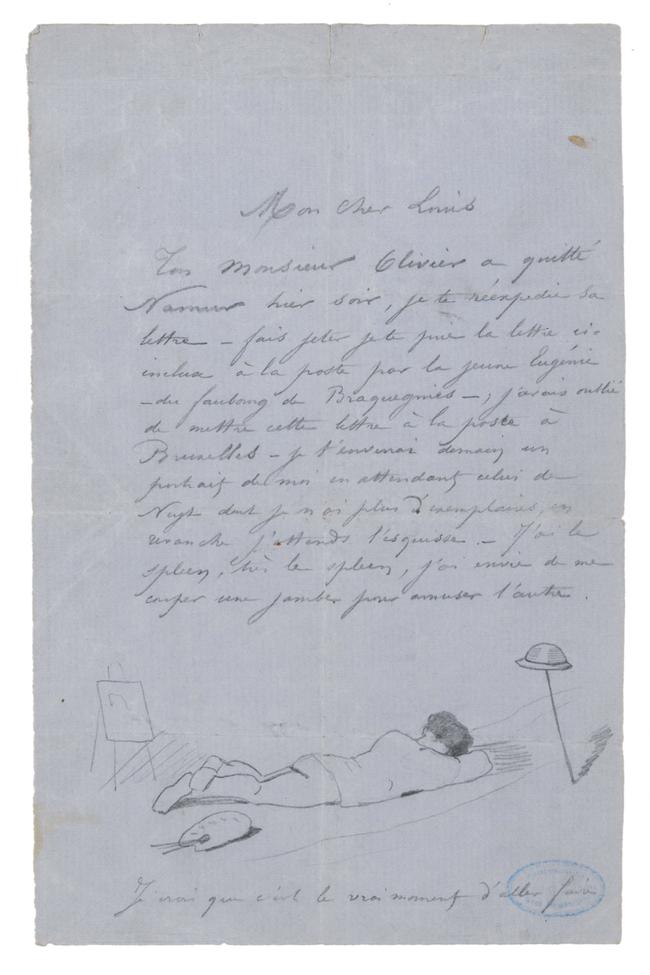 Mon cher Louis
Ton Monsieur Olivier a quitté
Namur hier soir, je te réexpédie sa
lettre – fais jeter je te prie la lettre ci-
inclue à la poste par la jeune Eugénie
– du faubourg de Braquegnies –; j'avais oublié
de mettre cette lettre à la poste à
Bruxelles – je t'enverrai demain un
portrait de moi en attendant celui de
Nuyt dont je n'ai plus d'exemplaires, en
revanche j'attends l'esquisse. – J'ai le
spleen, le spleen, j'ai envie de me
couper une jambe pour amuser l'autre.
Je crois que c'est le vrai moment d'aller faire